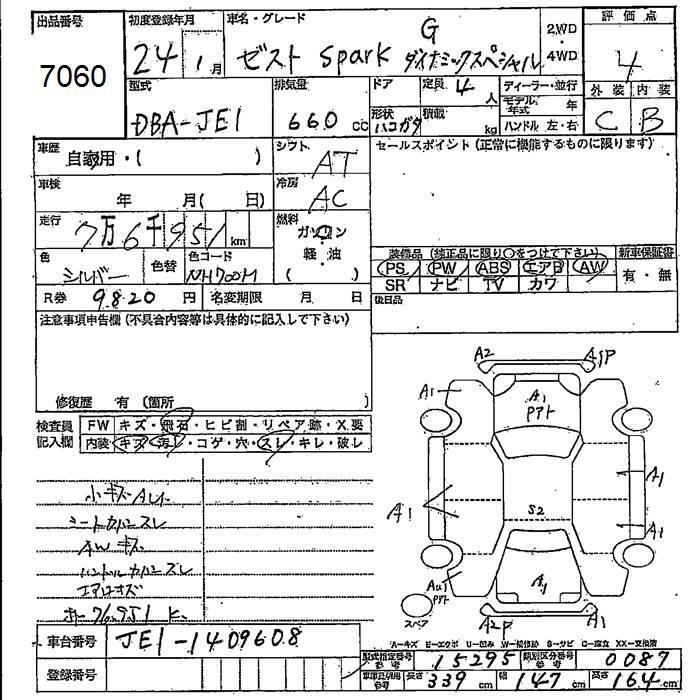 出品番号 初度登録年月 車名・グレード 評価点
7060 24年 1月 ゼスト spark G ダイナミックスペシャル 2WD・4WD 4
型式 排気量 ドア 定員 4人 ディーラー・並行 外装 内装
DBA-JE1 660cc 形状 ハコガタ 積載 kg モデル年式 年 C B
ハンドル 左・右
車歴 自家用・( ) シフト AT セールスポイント (正常に機能するものに限ります)
車検 年 月( 日) 冷房 AC
走行 7万6千951km 燃料 ガソリン
軽油
( )
色 シルバー 色替 色コード NH700M
装備品 (純正品に限り○をつけて下さい) 新車保証書
PS PW ABS エアB AW 有・無
SR ナビ TV カワ
R券 9820円 名変期限 月 日 後日品
注意事項申告欄 (不具合内容等は具体的に記入して下さい)
修復歴 有 (箇所 )
検査員記入欄 FW キズ・飛石・ヒビ割・リペア跡・X要
内装 キズ・汚レ・コゲ・穴・スレ・キレ・破レ
A2 A1P
A1 A1 Pアト
小キズAU
シートカバースレ
AWキズ
ハンドルカバースレ
エアロキズ
76951K
A1 A1
S2 A1
AU1 Pアト A1
スペア A2P A1
A=キズ E=エクボ U=凹み W=補修跡 S=サビ C=腐食 XX=交換済
車台番号 JE1-1409608
型式指定番号 参考 15295 類別区分番号 参考 0087
登録番号
車庫証明用 参考 長さ 339cm 幅 147cm 高さ 164cm